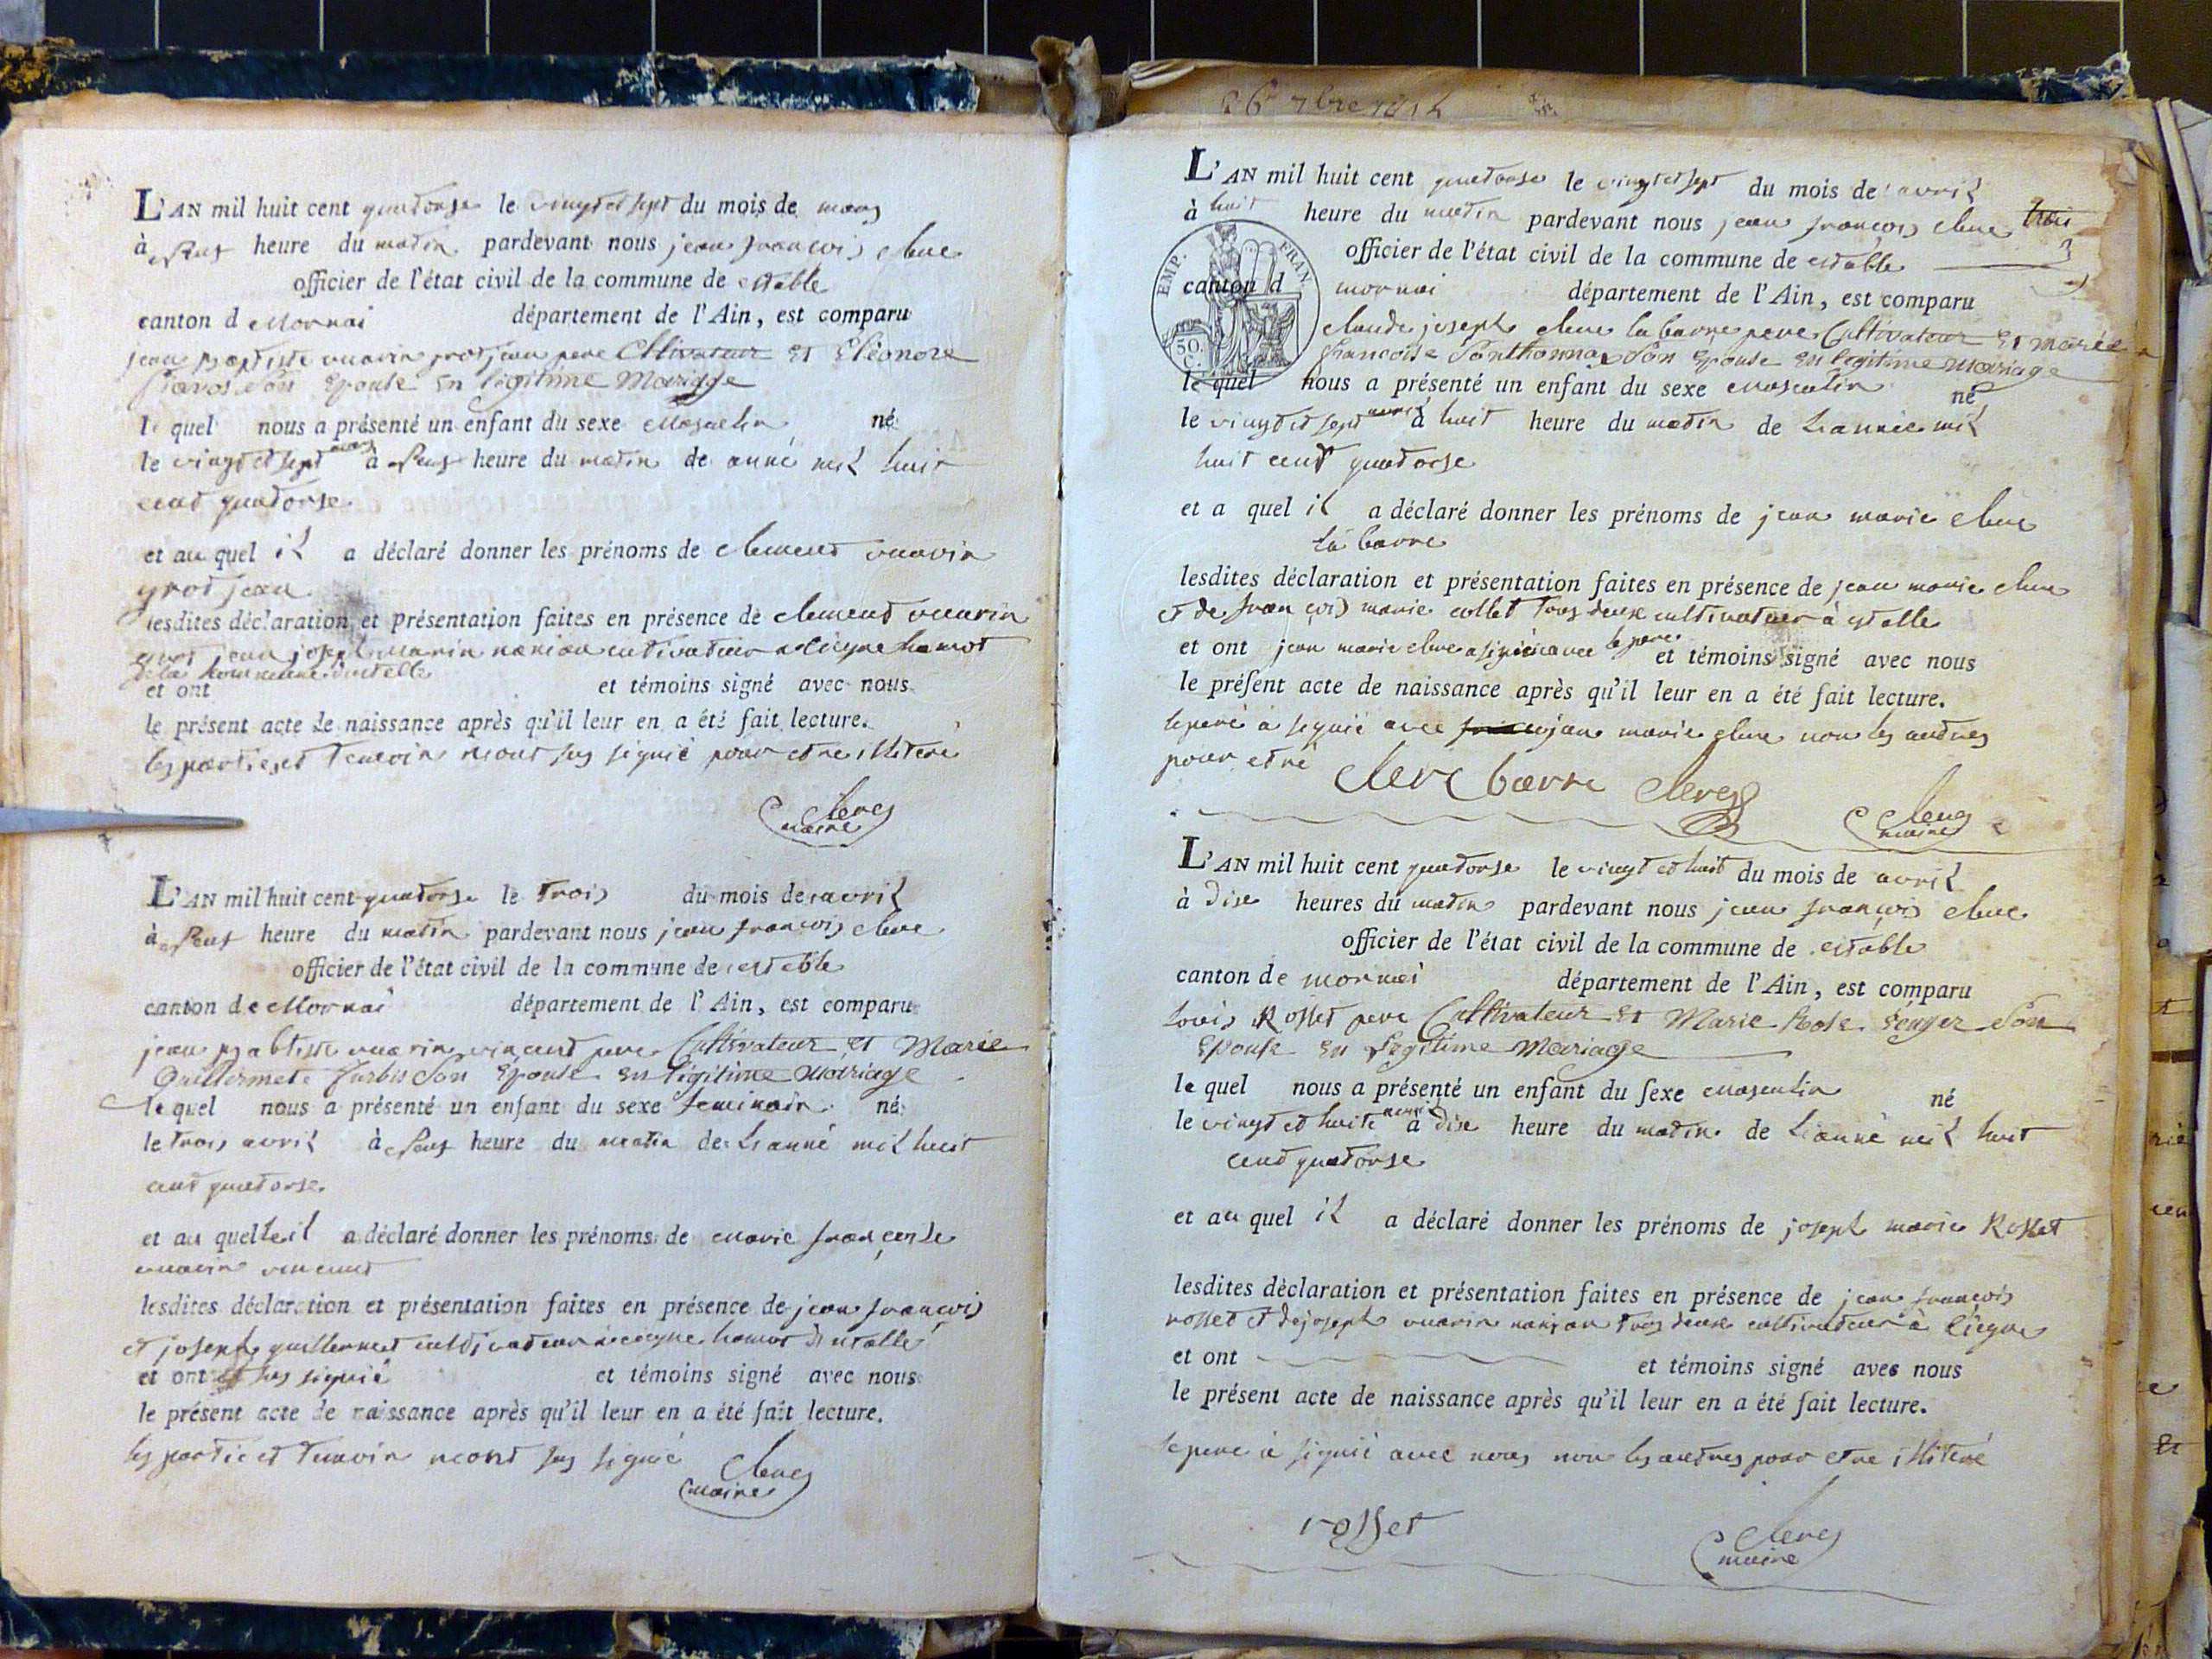 L'AN mil huit cent quatorse le vingt et sept du mois de mars
à heure du matin pardevant nous jean françois clerc
officier de l'état civil de la commune de estable
canton d Mornai département de l'Ain, est comparu
jean baptiste vuarin grosjean pere Cultivateur Et Eléonore
son Epouse En légitime Mariage
le quel nous a présenté un enfant du sexe Masculin né
le vingt et sept mars à heure du matin de anné mil huit
cent quatorse
et au quel il a déclaré donner les prénoms de clement vuarin
grosjean
lesdites déclaration et présentation faites en présence de clement vuarin
grot jean joseph vuarin cultivateur hamot
de la commune
et ont et témoins signé avec nous
le présent acte de naissance après qu'il leur en a été fait lecture.
les parties et temoin n'ont pas signié pour etre illiteré
clerc
maire
L'AN mil huit cent quatorse le trois du mois de avril
à heure du matin pardevant nous jean françois clerc
officier de l'état civil de la commune de estable
canton de Mornai département de l'Ain, est comparu
jean babtiste vuarin vincent pere Cultivateur Et Marie
son Epouse En légitime Mariage
le quel nous a présenté un enfant du sexe feminain né
le trois avril à heure du matin de L'anné mil huit
cent quatorse
et au quelle il a déclaré donner les prénoms de Marie françoise
vuarin vincent
lesdites déclaration et présentation faites en présence de jean françois
et joseph guillermet cultivateur hamot
et ont pas signié et témoins signé avec nous
le présent acte de naissance après qu'il leur en a été fait lecture.
les partie et temoin n'ont pas signié
clerc
maire
L'AN mil huit cent quatorse le vingt et sept du mois de avril
à huit heure du matin pardevant nous jean françois clerc trois
officier de l'état civil de la commune de estable 3
EMP. FRAN.
50.
C.
canton d mornai département de l'Ain, est comparu
claude joseph clerc la barre pere Cultivateur Et Marie
françoise Ponthonnax son Epouse En légitime mariage
le quel nous a présenté un enfant du sexe Masculin né
le vingt et sept avril à huit heure du matin de L'année mil
huit cent quatorse
et a quel il a déclaré donner les prénoms de jean marie clerc
la barre
lesdites déclaration et présentation faites en présence de jean marie clerc
et de françois marie collet tous deux cultivateur à
et ont jean marie clerc a signié avec le pere et témoins signé avec nous
le présent acte de naissance après qu'il leur en a été fait lecture.
le pere a signié avec jean marie clerc non les autres
pour etre
clerc barre clerc
clerc
maire
L'AN mil huit cent quatorse le vingt et huit du mois de avril
à dise heures du matin pardevant nous jean françois clerc
officier de l'état civil de la commune de estable
canton de mornai département de l'Ain, est comparu
Louis Rosset pere Cultivateur Et Marie Rose son
Epouse En Légitime Mariage
le quel nous a présenté un enfant du sexe masculin né
le vingt et huite avril à dise heure du matin de L'anné mil huit
cent quatorse
et au quel il a déclaré donner les prénoms de joseph marie Rosset
lesdites déclaration et présentation faites en présence de jean françois
rosset et de joseph vuarin tous deux cultivateur à
et ont et témoins signé avec nous
le présent acte de naissance après qu'il leur en a été fait lecture.
le pere à signié avec nous non les autres pour etre illiteré
rosset
clerc
maire